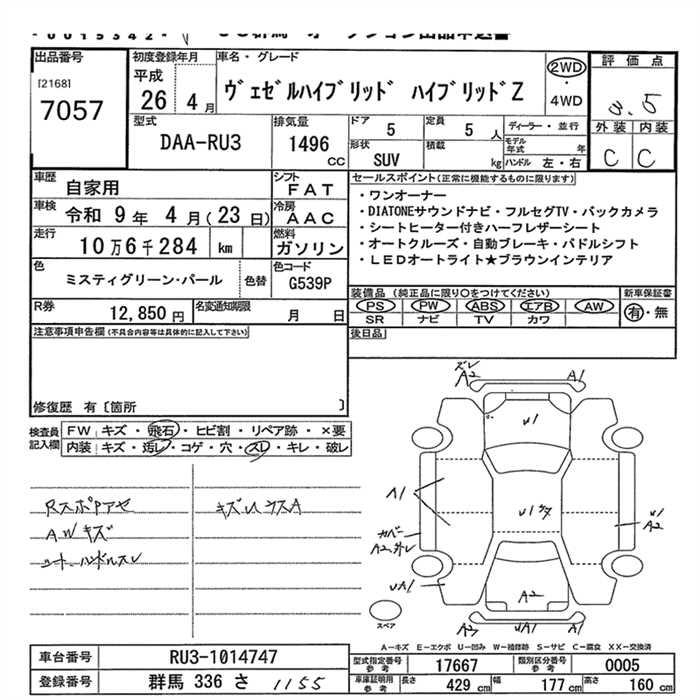 出品番号
[2168]
7057
初度登録年月
平成
26年 4月
車名・グレード
ヴェゼルハイブリッド ハイブリッドZ
2WD
・
4WD
評価点
3.5
外装 内装
C C
型式
DAA-RU3
排気量
1496
CC
ドア
5
定員
5人
ディーラー・並行
形状
SUV
積載
kg
モデル年式 年
ハンドル 左・右
車歴
自家用
シフト
FAT
車検
令和 9年 4月(23日)
冷房
AAC
走行
10万6千284 km
燃料
ガソリン
色
ミスティグリーン・パール
色替
色コード
G539P
R券
12,850円
名変通知期限
月 日
セールスポイント(正常に機能するものに限ります)
・ワンオーナー
・DIATONEサウンドナビ・フルセグTV・バックカメラ
・シートヒーター付きハーフレザーシート
・オートクルーズ・自動ブレーキ・パドルシフト
・LEDオートライト★ブラウンインテリア
装備品(純正品に限り○をつけてください)
PS PW ABS エアB AW
SR ナビ TV カワ
新車保証書
有・無
後日品
注意事項申告欄(不具合内容等は具体的に記入して下さい)
修復歴 有〔箇所 〕
検査員記入欄
FW キズ・飛石・ヒビ割・リペア跡・×要
内装 キズ・汚レ・コゲ・穴・スレ・キレ・破レ
AWキズ
ズレ
A2
A1
U1
A1
U1
A2
カバー
A2
UA1
A2
A2
UA1
スペア
A-キズ E-エクボ U-凹み W-補修跡 S-サビ C-腐食 XX-交換済
車台番号
RU3-1014747
登録番号
群馬 336 さ 1155
型式指定番号
参考
17667
類別区分番号
参考
0005
車庫証明用
参考
長さ 429 cm
幅 177 cm
高さ 160 cm